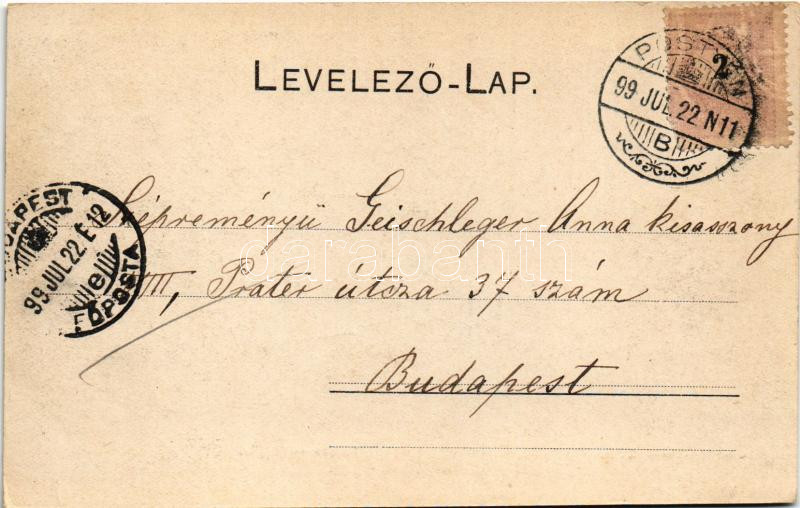 LEVELEZŐ-LAP.
PÖSTYÉN
2
99 JUL. 22 N 11
B
BUDAPEST
99 JUL. 22 É. 12
e
FŐPOSTA
Képreményü Geischleger Anna kisasszony
VIII, Práter útcza 37 szám
Budapest
darabanth